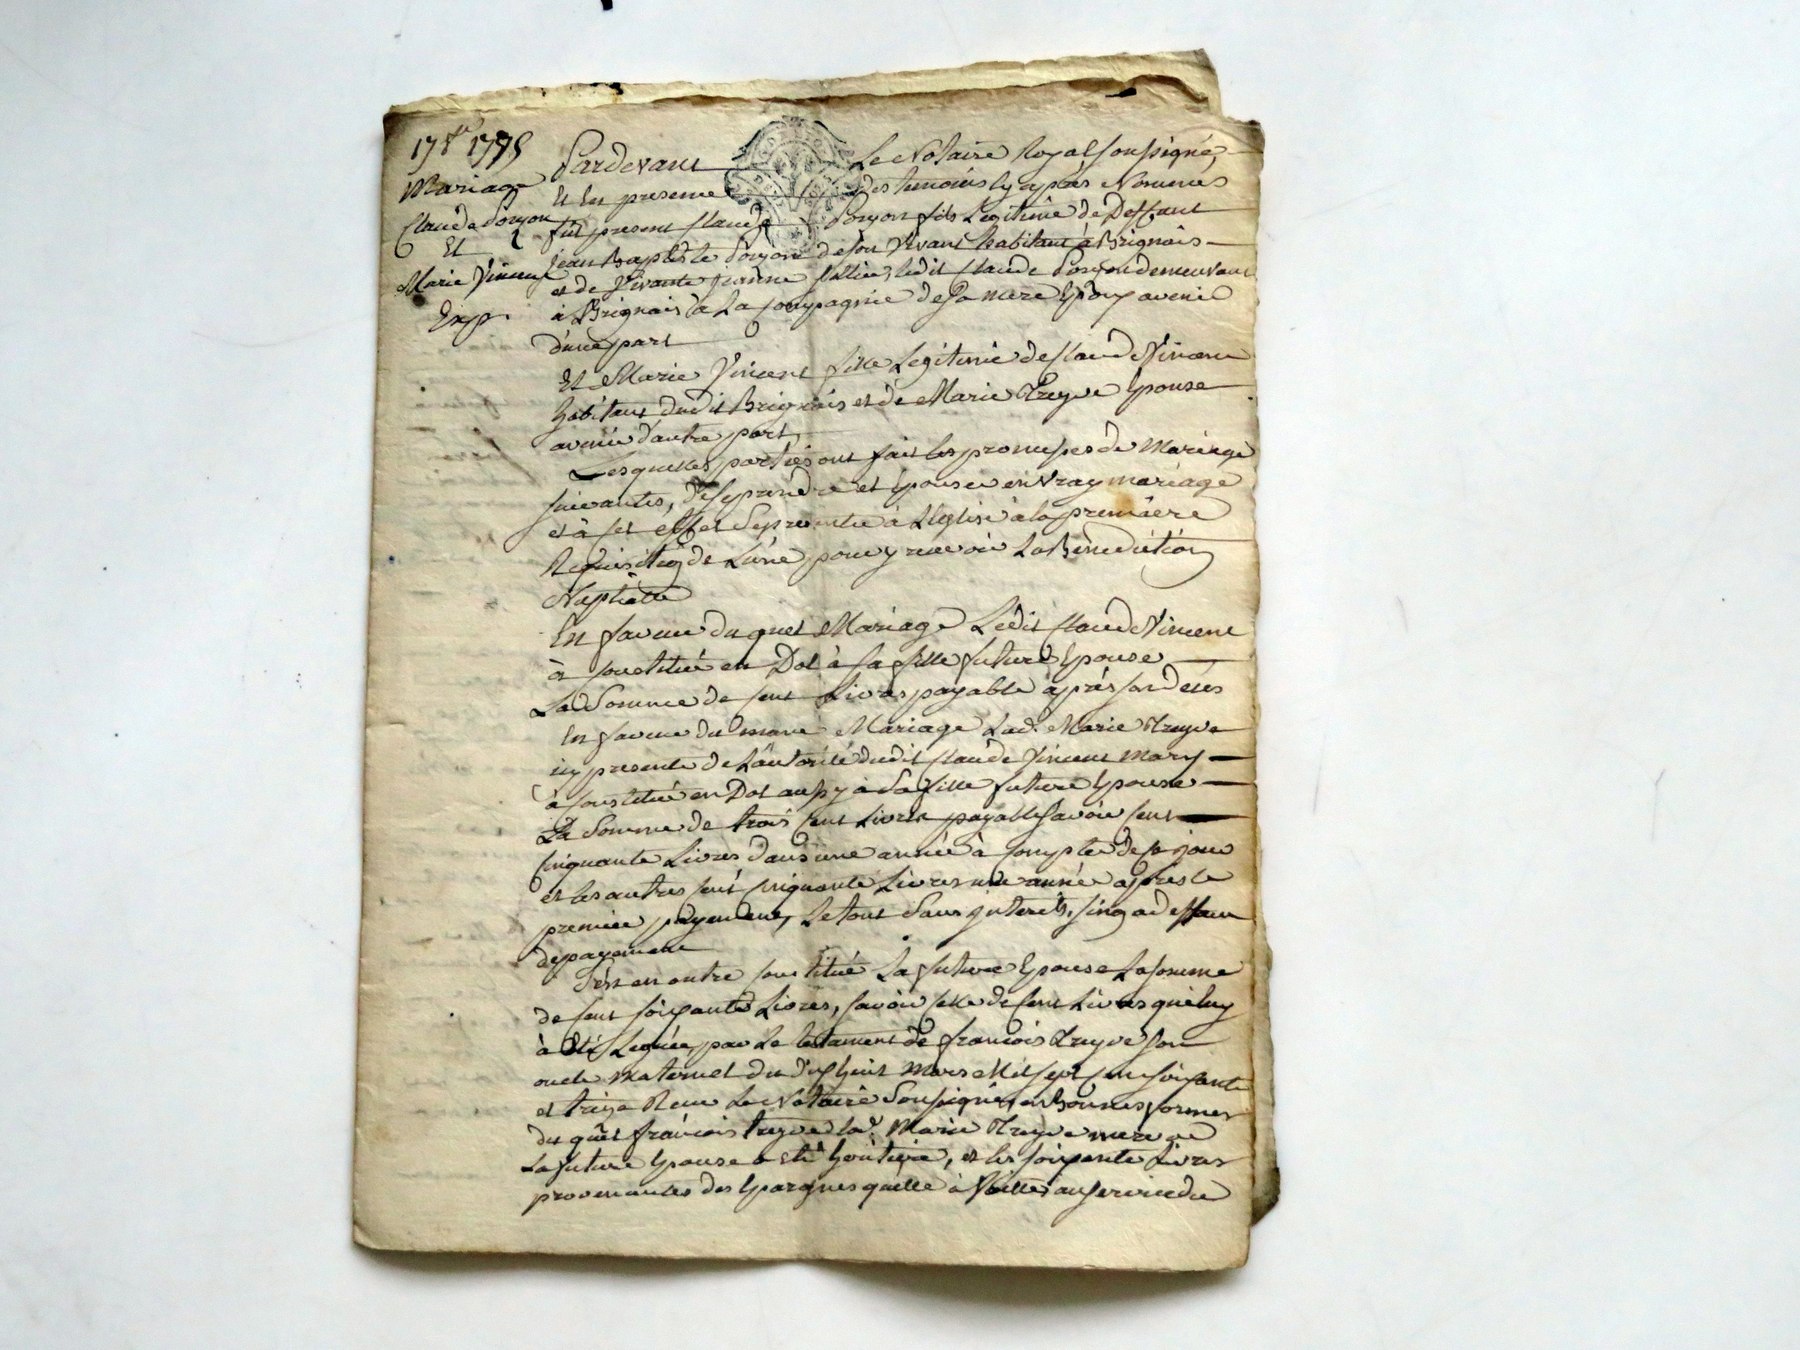 1775
Mariage
Claude Poyon
Et
Marie Vincent
Exp.
Pardevant Le Notaire Royal soussigné,
Et en presence des temoins cy après Nommés
fut present Claude Poyon fils Legitime de Deffunt
Jean Baptiste Poyon de son Vivant habitant à Brignais
et de Vivante Jeanne ledit Claude Poyon demeurant
à Brignais à La Compagnie de Sa mere Epoux avenir
d'une part
Et Marie Vincent fille Legitime de Claude Vincent
habitant dudit Brignais et de Marie Treyve Epouse
avenir d'autre part
Lesquelles parties ont fait les promesses de Mariage
suivantes, de se prendre et Epouser en Vray mariage
et à cet effet Se presenter à L'Eglise à la première
Requisition de L'une pour y recevoir La Bénédiction
Nuptiale
En faveur du quel Mariage Ledit Claude Vincent
à Constitué en Dot à sa fille future Epouse
La Somme de Cent Livres payable après son deces
En faveur du meme Mariage Lad. Marie Treyve
icy presente de L'autorité dudit Claude Vincent Mary
à Constitué en Dot aussy à Sa fille future Epouse
La Somme de trois Cent Livres payable savoir Cent
Cinquante Livres dans une année à Compter de ce jour
et les autres Cent Cinquante Livres une année après le
premier payement, Le tout Sans interets, sinon a deffaut
de payement
S'est en outre Constitué La future Epouse La somme
de Cent soixante Livres, savoir Celle de Cent Livres qui luy
à Eté Leguée par Le testament de françois Treyve son
oncle Maternel du dix huit Mars Mil sept cent soixante
et treize Reçu Le Notaire Soussigné en Bonnes formes
du quel françois treyve lad. Marie Treyve mere de
La future Epouse a eté héritiere, et les soixante Livres
provenantes des Epargnes quelle à faittes au service du